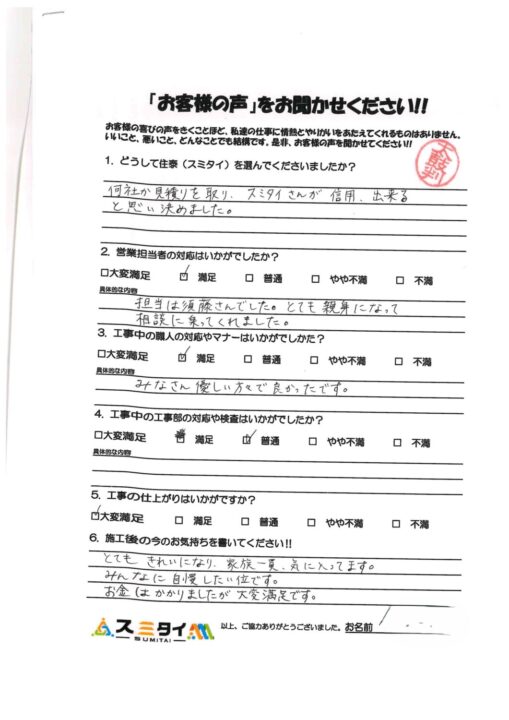 「お客様の声」をお聞かせください!!
お客様の喜びの声をきくことほど、私達の仕事に情熱とやりがいをあたえてくれるものはありません。
いいこと、悪いこと、どんなことでも結構です。是非、お客様の声を聞かせてください!!
1. どうして住泰(スミタイ)を選んでくださいましたか?
何社か見積りを取り、スミタイさんが信用、出来る
と思い決めました。
2. 営業担当者の対応はいかがでしたか?
□大変満足 ☑ 満足 □ 普通 □ やや不満 □ 不満
具体的な内容
担当は須藤さんでした。とても親身になって
相談に乗ってくれました。
3. 工事中の職人の対応やマナーはいかがでしかた?
□大変満足 ☑ 満足 □ 普通 □ やや不満 □ 不満
具体的な内容
みなさん優しい方々で良かったです。
4. 工事中の工事部の対応や検査はいかがでしたか?
□大変満足 満足 ☑ 普通 □ やや不満 □ 不満
具体的な内容
5. 工事の仕上がりはいかがですか?
☑大変満足 □ 満足 □ 普通 □ やや不満 □ 不満
6. 施工後の今のお気持ちを書いてください!!
とても きれいになり、家族一員、気に入ってます。
みんなに自慢したい位です。
お金はかかりましたが大変満足です。
スミタイ
SUMITAI
以上、ご協力ありがとうございました。お名前